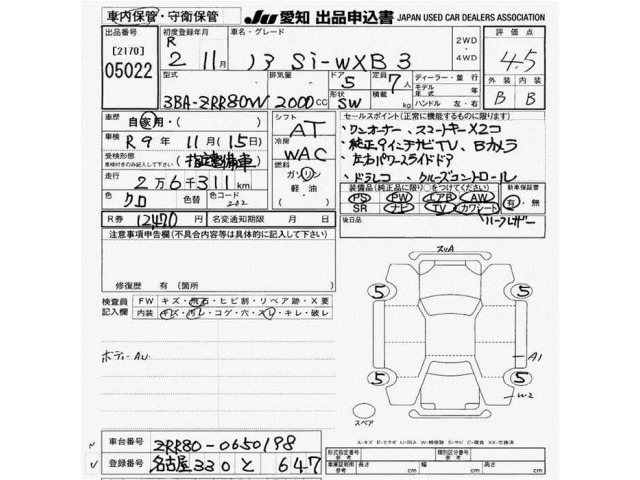 車内保管・守衛保管 JU 愛知 出品申込書 JAPAN USED CAR DEALERS ASSOCIATION
出品番号 [2170] 05022
初度登録年月 R 2 11月
車名・グレード ノア Si-WXB3
2WD・4WD
評価点 4.5
型式 3BA-ZRR80W
排気量 2000CC
ドア 5
定員 7人
形状 SW
積載 kg
ディーラー・並行
モデル年式 年
ハンドル 左・右
外装 内装
B B
車歴 自家用・( )
シフト AT
車検 R 9年 11月(15日)
冷房 WAC
受検形態 車検付きのみ記入して下さい (指定整備車)
燃料 ガソリン 軽油・( )
走行 2万6千311km
色 クロ 色替 色コード 202
R券 12470 名変通知期限 月 日
セールスポイント(正常に機能するものに限り)
・ワンオーナー、スマートキーX2コ
・純正9インチナビTV、Bカメラ
・左右パワースライドドア
・ドラレコ クルーズコントロール
装備品(純正品に限り○をつけてください) 新車保証書
PS PW エアB AW 有・無
SR ナビ TV カワシート ハーフレザー
後日品
注意事項申告欄(不具合内容等は具体的に記入して下さい)
修復歴 有 (箇所 )
検査員記入欄
FW キズ・飛石・ヒビ割・リペア跡・X要
内装 キズ・汚レ・コゲ・穴・スレ・キレ・破レ
ボディーAU
スリA
5 5
5 5
A1
W2
スペア
A-キズ E-エクボ U-凹ム W-補修跡 S-サビ C-腐食 XX-交換済
車台番号 ZRR80-0650198
登録番号 名古屋330と647
型式指定番号 参考 類別区分番号 参考
車庫証明用 参考 長さ cm 幅 cm 高さ cm